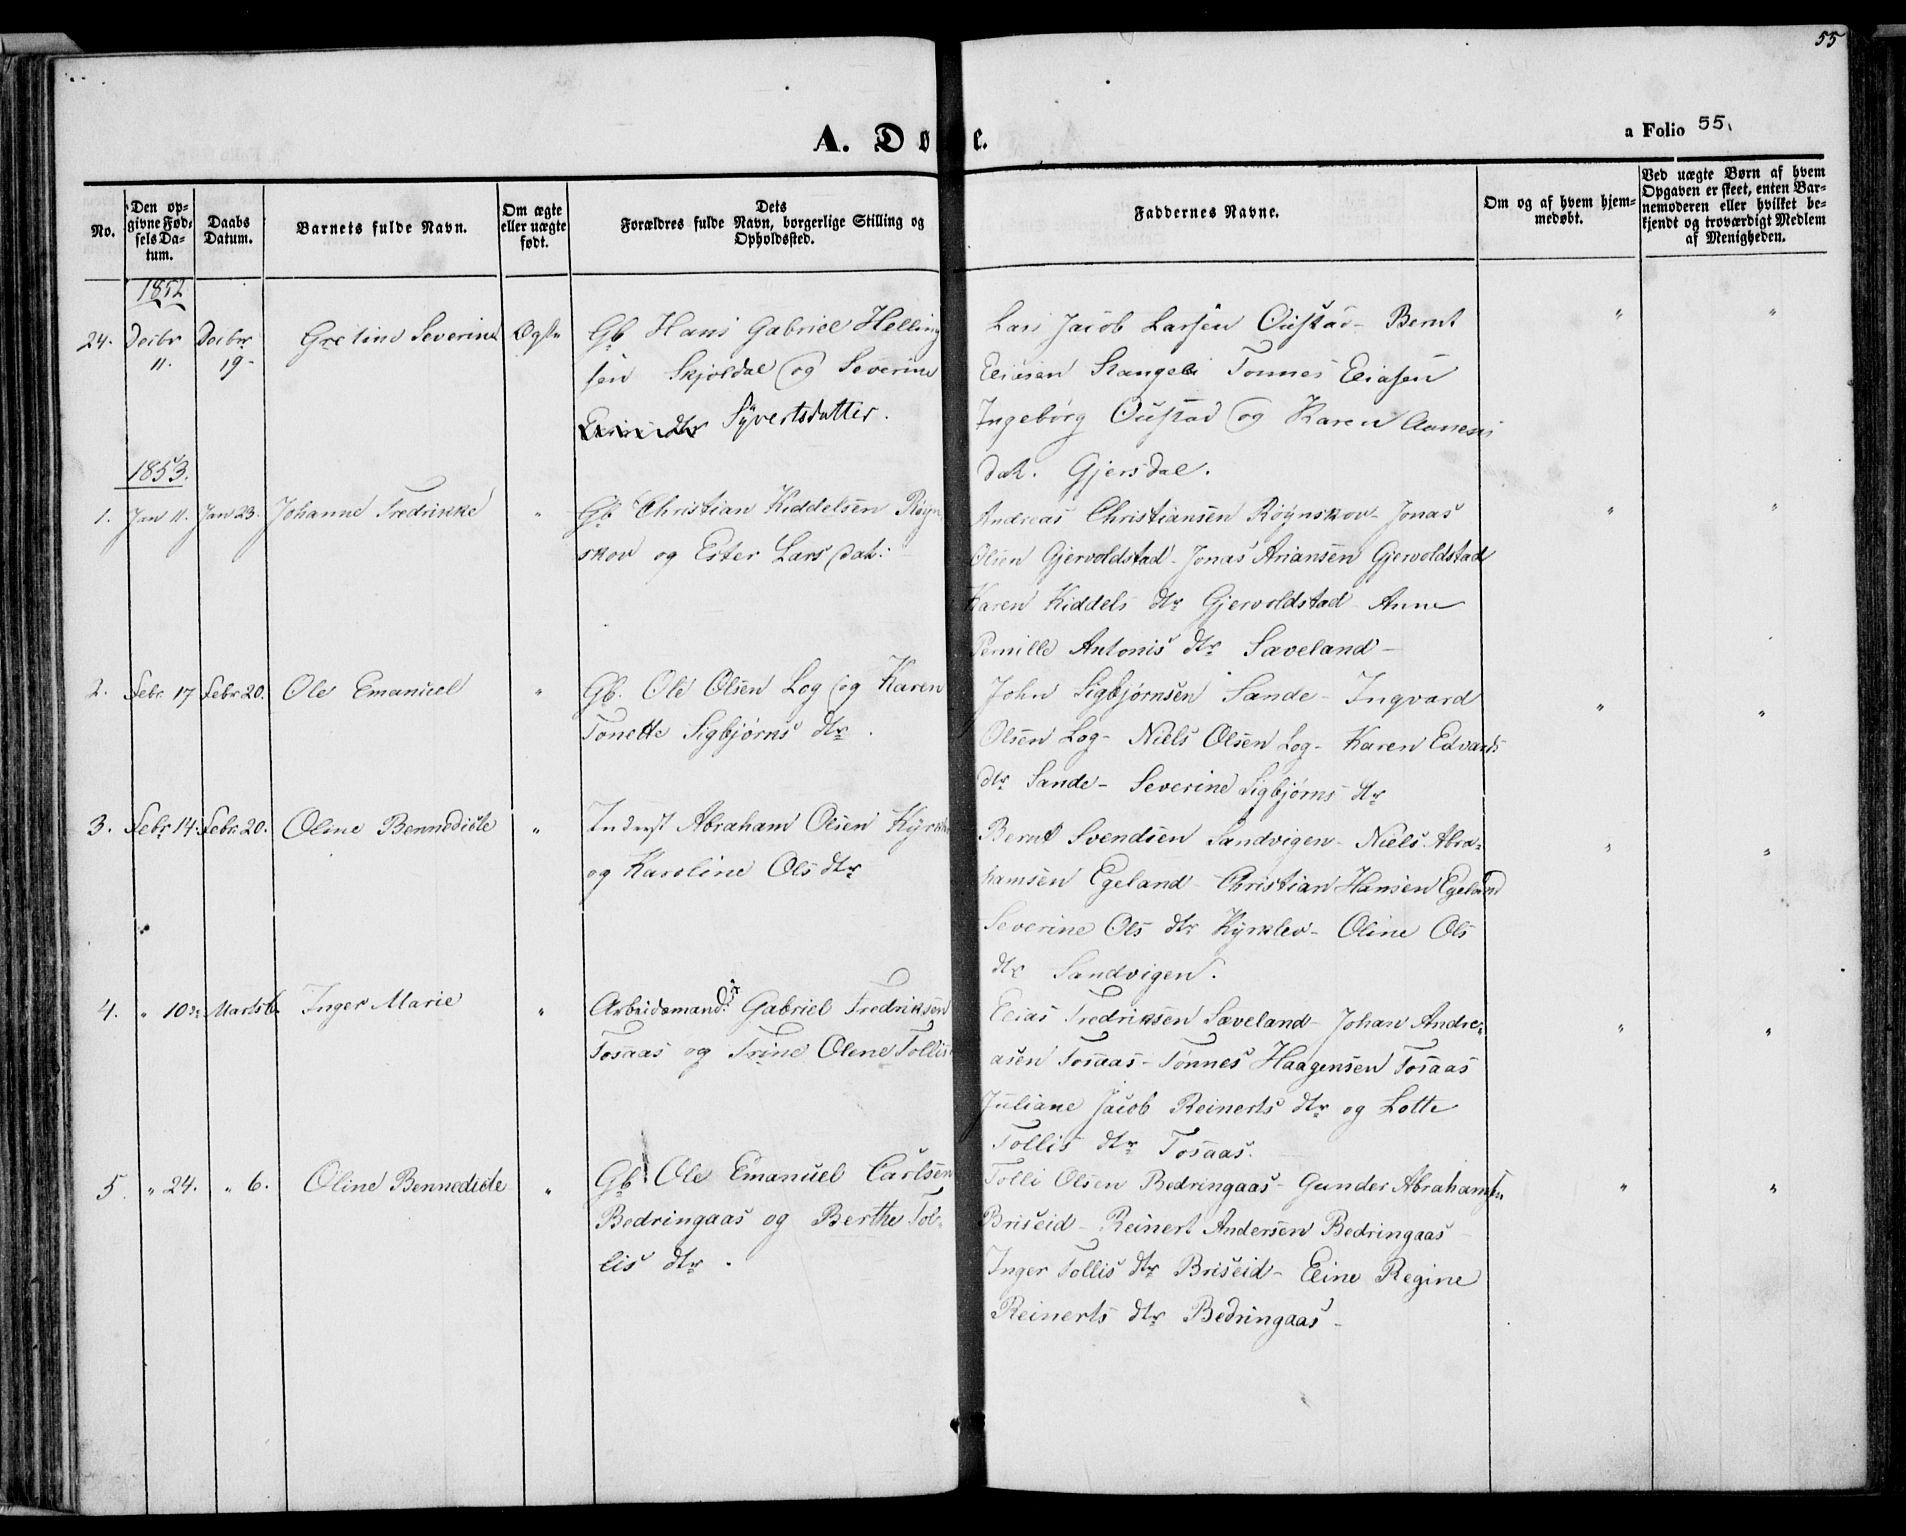 55
A. Dø e.
a Folio 55.
No.
Den op-
givne Fød-
sels Da-
tum.
Daabs
Datum.
Barnets fulde Navn.
Om ægte
eller uægte
født.
Dets
Forældres fulde Navn, borgerlige Stilling og
Opholdssted.
Faddernes Navne.
Om og af hvem hjem-
medøbt.
Ved uægte Børn af hvem
Opgaven er skeet, enten Bar-
nemoderen eller hvilket be-
kjendt og troværdigt Medlem
af Menigheden.
1852
24. Decbr 11. Decbr 19- Gretine Severine Ægte Gb Hans Gabriel Helling
sen Skjoldal og Severine
Syvertsdatter.
Lars Jacob Larsen Oustad - Bernt
Eliasen Stangeli Tonnes Eliasen
Ingeborg Oustad og Karen
dat. Gjersdal.
1853.
1. Jan 11. Jan 23. Johanne Fredrikke " Gb Christian Kiddelsen Røyn
skov og Ester Lars dat:
Andreas Christiansen Røynskov - Jonas
Olsen Gjervoldstad - Jonas Ariansen Gjervoldstad
Karen Kiddels dtr Gjervoldstad - Anne
Pernille Antonis dtr Saveland -
2. Febr. 17 Febr 20. Ole Emanuel " Gb. Ole Olsen Log og Karen
Tonette Sigbjørns dtr.
John Sigbjørnsen Sande - Ingvard
Olsen Log - Niels Olsen Log - Karen Edvards
dtr Sande - Severine Sigbjørns dtr
3. Febr 14. Febr. 20. Oline Bennedicte " Inderst Abraham Olsen
og Karoline Ols dtr
Bernt Svendsen Sandvigen - Niels Abra-
hamsen Egeland - Christian Hansen Egeland
Severine Ols dtr Kyrklev - Oline Ols
dtr Sandvigen.
4. " 10 Marts 6. Inger Marie " Arbeidsmand Gabriel Fredriksen
Tosaas og Trine Oline Tollis
Elias Fredriksen Saveland - Johan Andre-
asen Tosaas - Tønnes Haagensen Tosaas
Juliane Jacob Reinerts dtr og Lotte
Tollis dtr Tosaas.
5. " 24. " 6. Oline Bennedicte " Gb Ole Emanuel Carlsen
Bedringaas og Berthe Tol-
lis dtr.
Tolli Olsen Bedringaas - Gunder Abrahamsen
Briseid - Reinert Andersen Bedringaas -
Inger Tollis dtr Briseid - Eline Regine
Reinerts dtr Bedringaas -